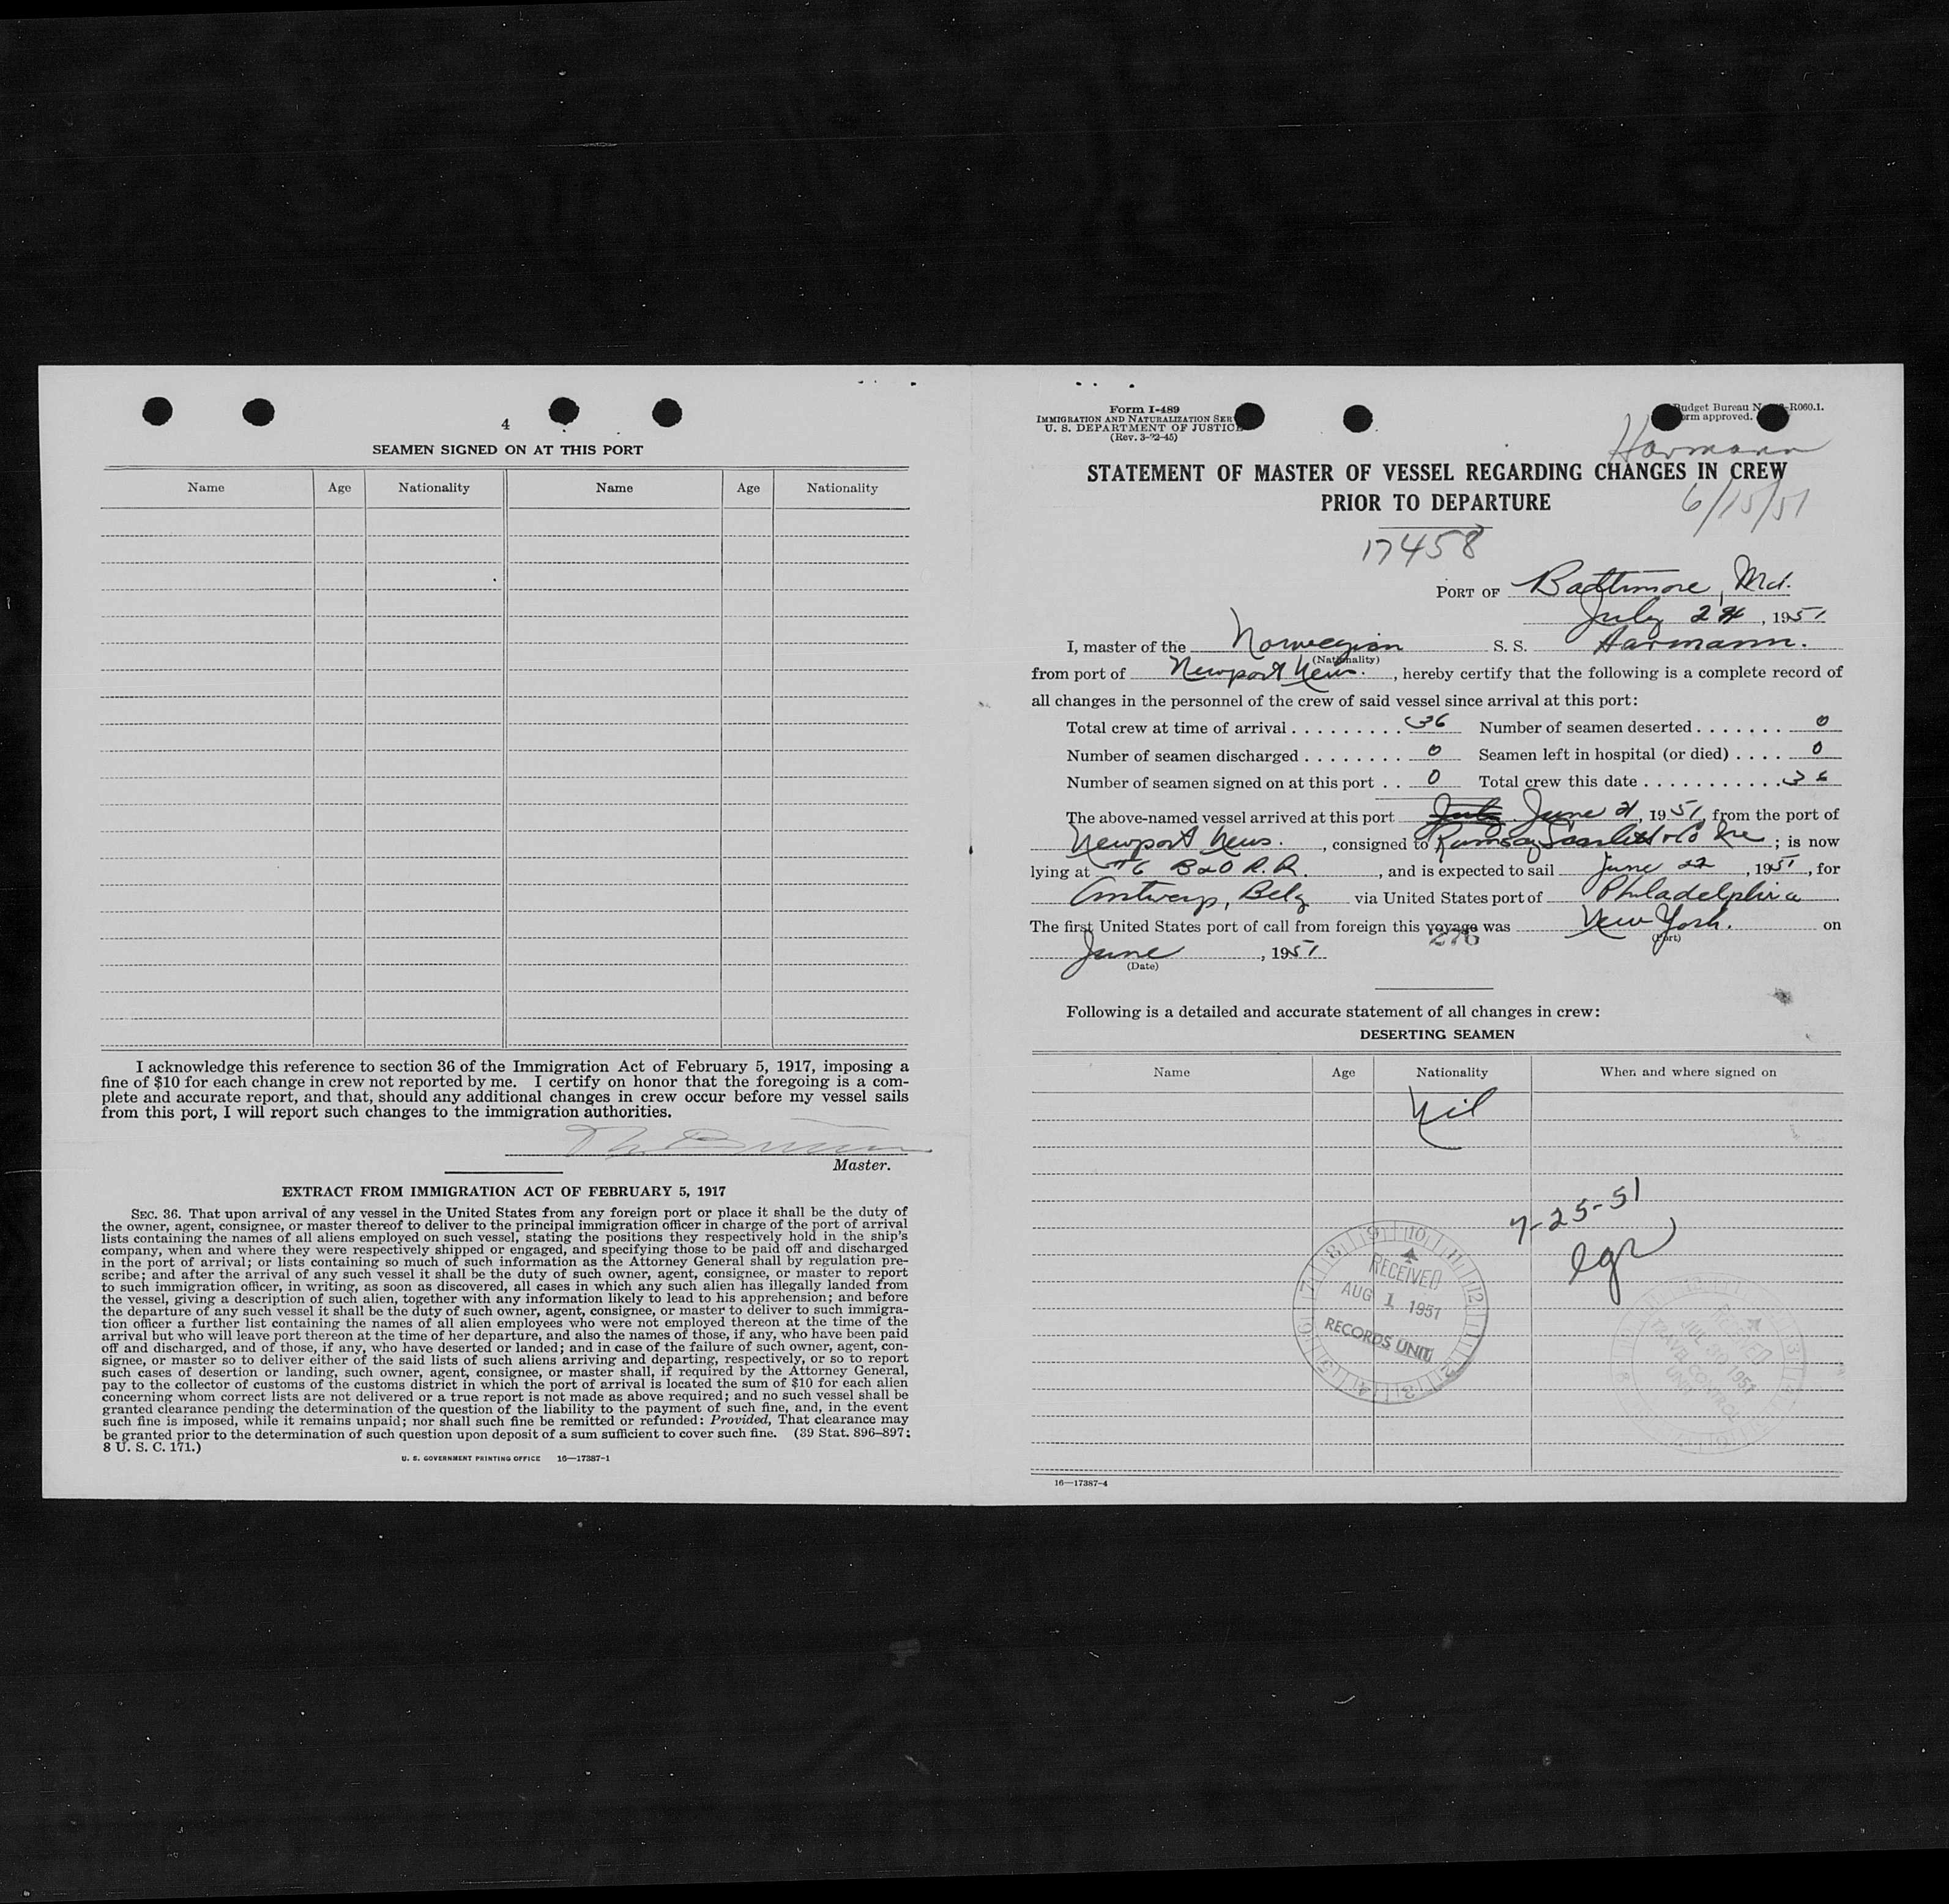 4
SEAMEN SIGNED ON AT THIS PORT
Name Age Nationality Name Age Nationality
I acknowledge this reference to section 36 of the Immigration Act of February 5, 1917, imposing a
fine of $10 for each change in crew not reported by me. I certify on honor that the foregoing is a com-
plete and accurate report, and that, should any additional changes in crew occur before my vessel sails
from this port, I will report such changes to the immigration authorities.
Master.
EXTRACT FROM IMMIGRATION ACT OF FEBRUARY 5, 1917
SEC. 36. That upon arrival of any vessel in the United States from any foreign port or place it shall be the duty of
the owner, agent, consignee, or master thereof to deliver to the principal immigration officer in charge of the port of arrival
lists containing the names of all aliens employed on such vessel, stating the positions they respectively hold in the ship's
company, when and where they were respectively shipped or engaged, and specifying those to be paid off and discharged
in the port of arrival; or lists containing so much of such information as the Attorney General shall by regulation pre-
scribe; and after the arrival of any such vessel it shall be the duty of such owner, agent, consignee, or master to report
to such immigration officer, in writing, as soon as discovered, all cases in which any such alien has illegally landed from
the vessel, giving a description of such alien, together with any information likely to lead to his apprehension; and before
the departure of any such vessel it shall be the duty of such owner, agent, consignee, or master to deliver to such immigra-
tion officer a further list containing the names of all alien employees who were not employed thereon at the time of the
arrival but who will leave port thereon at the time of her departure, and also the names of those, if any, who have been paid
off and discharged, and of those, if any, who have deserted or landed; and in case of the failure of such owner, agent, con-
signee, or master so to deliver either of the said lists of such aliens arriving and departing, respectively, or so to report
such cases of desertion or landing, such owner, agent, consignee, or master shall, if required by the Attorney General,
pay to the collector of customs of the customs district in which the port of arrival is located the sum of $10 for each alien
concerning whom correct lists are not delivered or a true report is not made as above required; and no such vessel shall be
granted clearance pending the determination of the question of the liability to the payment of such fine, and, in the event
such fine is imposed, while it remains unpaid; nor shall such fine be remitted or refunded: Provided, That clearance may
be granted prior to the determination of such question upon deposit of a sum sufficient to cover such fine. (39 Stat. 896-897;
8 U. S. C. 171.)
U. S. GOVERNMENT PRINTING OFFICE 16—17387-1
Form I-489
IMMIGRATION AND NATURALIZATION SER
U. S. DEPARTMENT OF JUSTICE
(Rev. 3-22-45)
Budget Bureau N -R060.1.
orm approved.
Harmann
STATEMENT OF MASTER OF VESSEL REGARDING CHANGES IN CREW
PRIOR TO DEPARTURE
6/15/51
17458
PORT OF Baltimore, Md.
July 24, 1951
I, master of the Norwegian S. S. Harmann.
(Nationality)
from port of Newport News. , hereby certify that the following is a complete record of
all changes in the personnel of the crew of said vessel since arrival at this port:
Total crew at time of arrival . . . . . . . . . 36 Number of seamen deserted . . . . . . . 0
Number of seamen discharged . . . . . . . . 0 Seamen left in hospital (or died) . . . . 0
Number of seamen signed on at this port . . 0 Total crew this date . . . . . . . . . . . 36
The above-named vessel arrived at this port July June 21, 1951, from the port of
Newport News. , consigned to Ramsay Scarlett & Co Inc ; is now
lying at #6 B&O R.R. , and is expected to sail June 22 , 1951 , for
Antwerp, Belg via United States port of Philadelphia
The first United States port of call from foreign this voyage was New York. on
276
(Port)
June , 1951
(Date)
Following is a detailed and accurate statement of all changes in crew:
DESERTING SEAMEN
Name Age Nationality When and where signed on
Nil
7-25-51
RECEIVED
AUG 1 1951
RECORDS UNIT
RECEIVED
JUL 30 1951
TRAVEL CONTROL
UNIT
16—17387-4